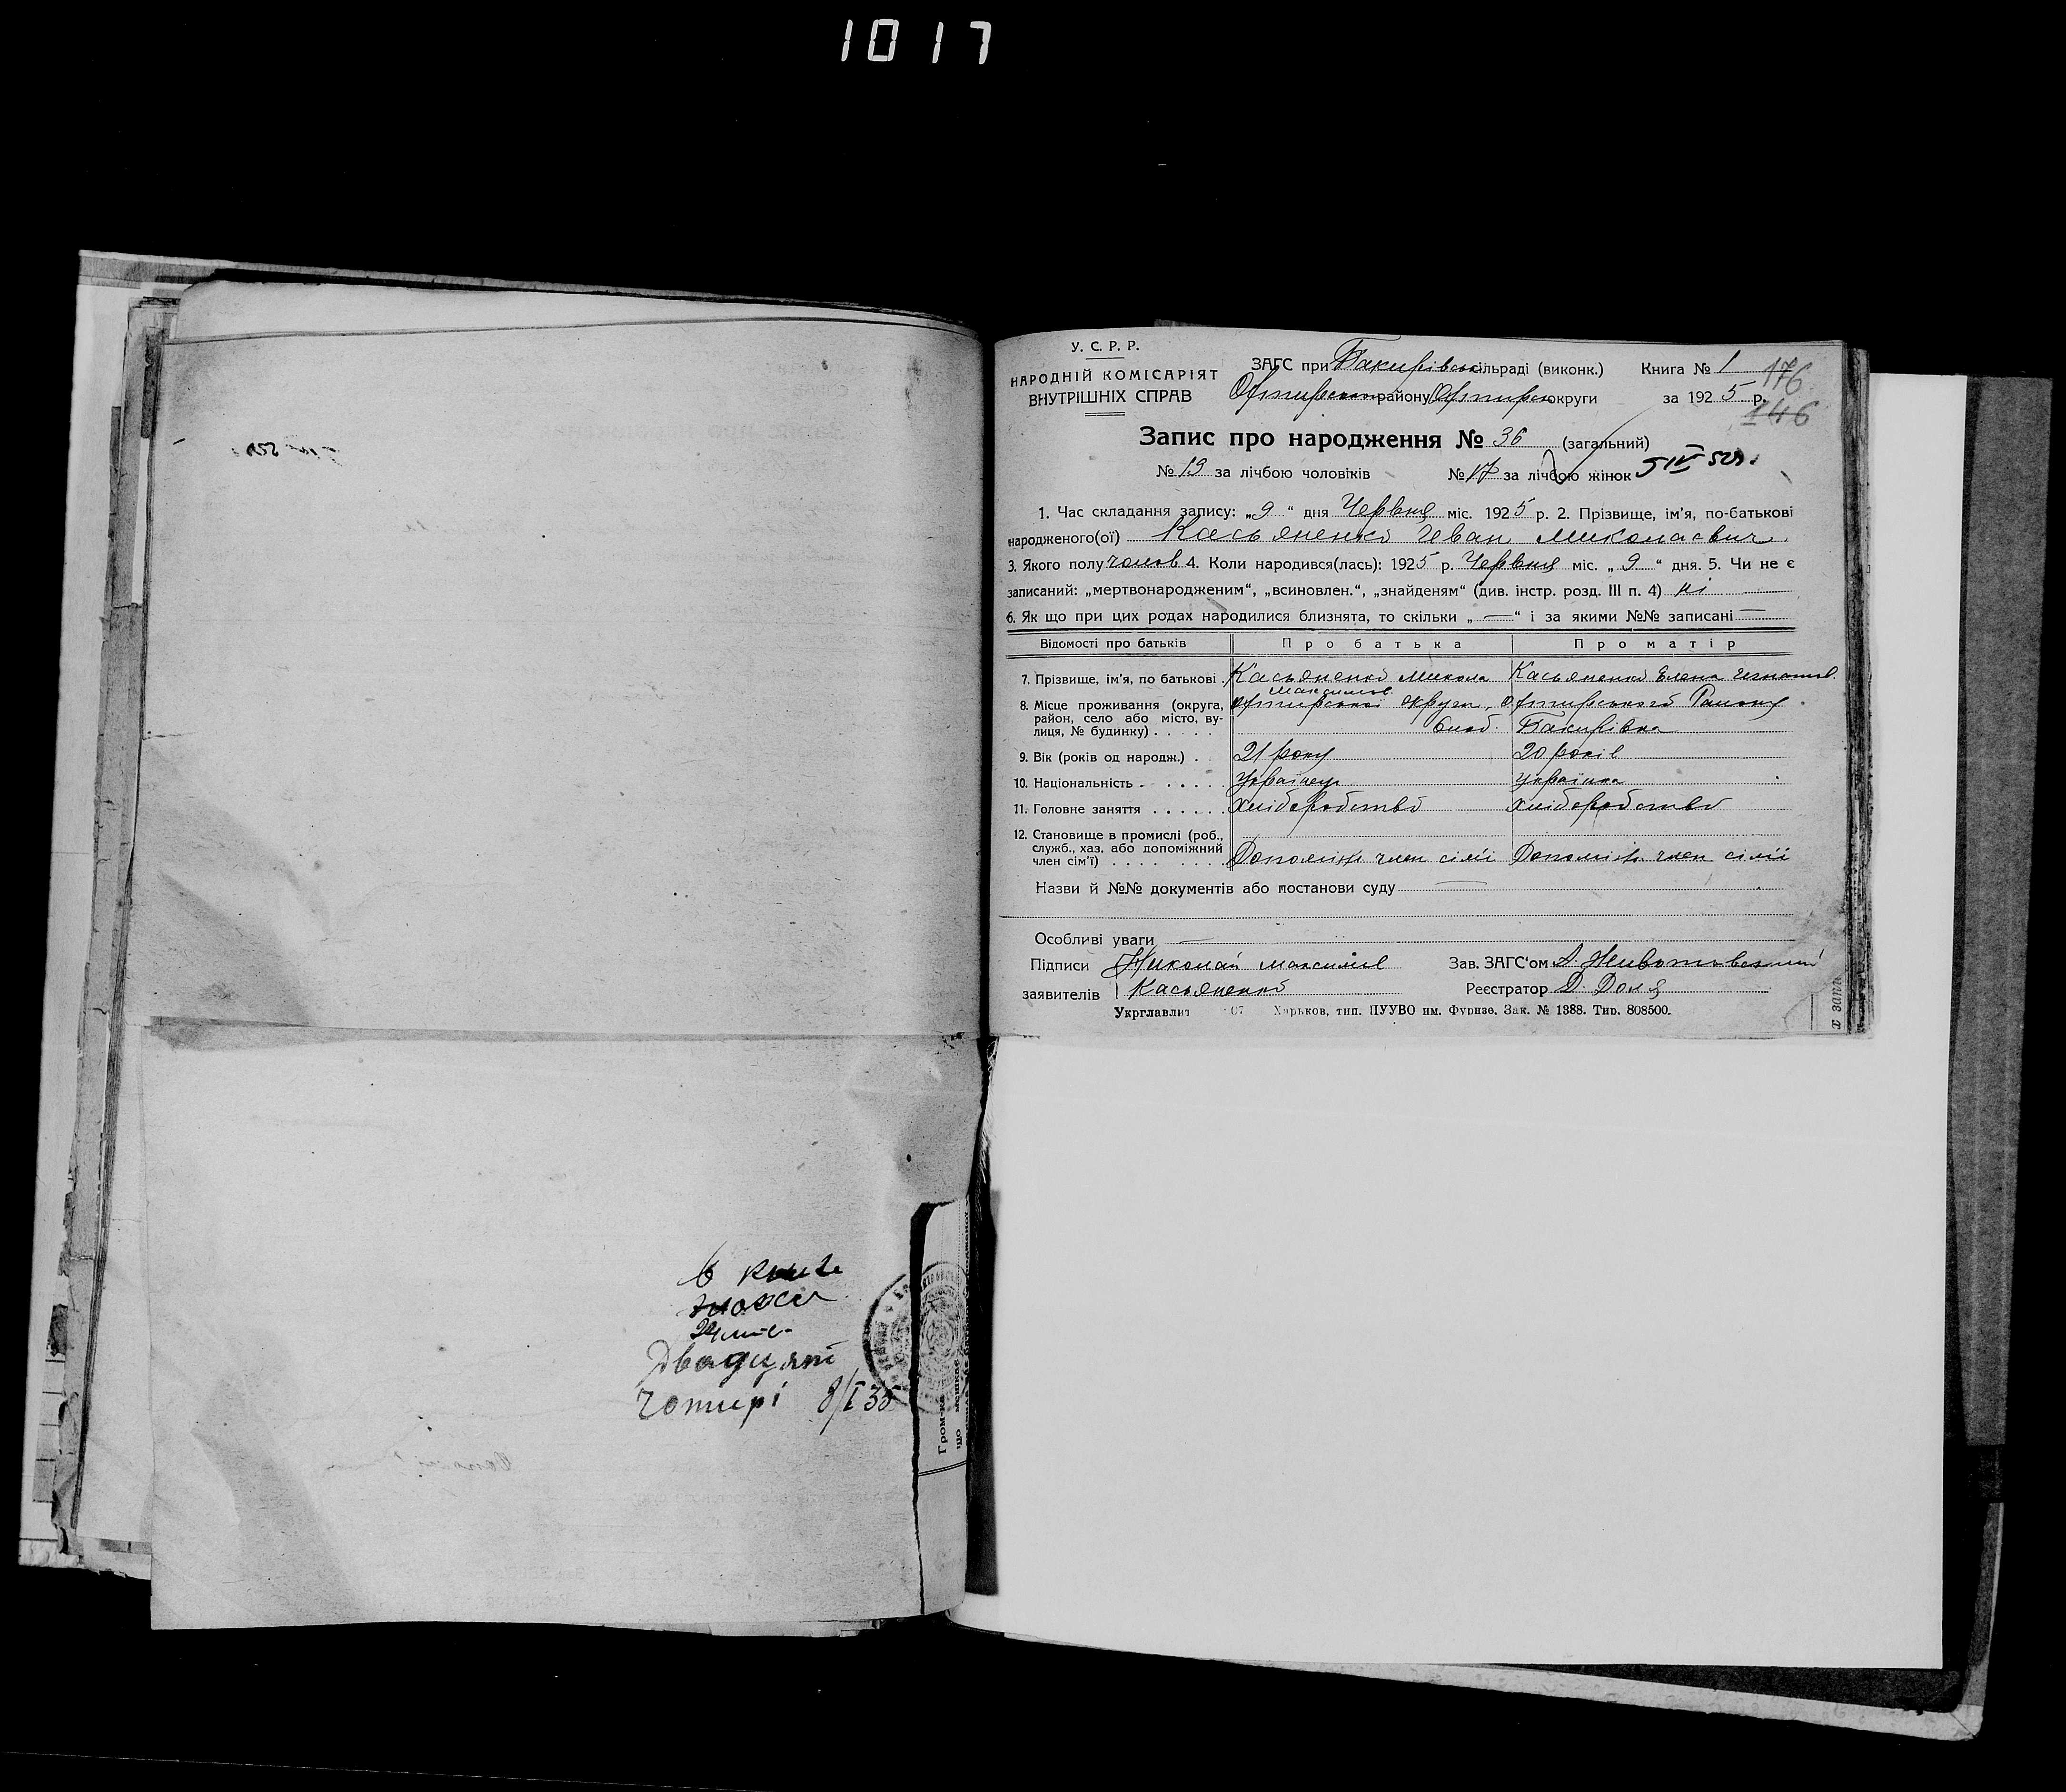 1017
У. С. Р. Р.
НАРОДНІЙ КОМІСАРІЯТ
ВНУТРІШНІХ СПРАВ
ЗАГС при Бакирівськ сільраді (виконк.)
Охтирськ району Охтирськ округи
Книга № 1
за 1925 р.
176
146
Запис про народження № 36 (загальний)
№ 19 за лічбою чоловіків № 17 за лічбою жінок
1. Час складання запису: „9“ дня Червня міс. 1925 р. 2. Прізвище, ім'я, по-батькові
народженого(ої) Касьяненко Иван Миколаєвич
3. Якого полу чолов 4. Коли народився(лась): 1925 р. Червня міс. „9“ дня. 5. Чи не є
записаний: „мертвонародженим“, „всиновлен.“, „знайденям“ (див. інстр. розд. III п. 4) ні —
6. Як що при цих родах народилися близнята, то скільки „—“ і за якими №№ записані —
Відомості про батьків Про батька Про матір
7. Прізвище, ім'я, по батькові Касьяненко Микола Максимов Касьяненко Елена Игнатов.
8. Місце проживання (округа, район, село або місто, вулиця, № будинку) Охтирської округи, Охтирського Району
Слоб. Бакирівка
9. Вік (років од народж.) 21 року 20 років
10. Національність українець українка
11. Головне заняття Хліборобство Хліборобство
12. Становище в промислі (роб.,
служб., хаз. або допоміжний
член сім'ї) Допоміж член сімї Допоміж. член сімї
Назви й №№ документів або постанови суду —
Особливі уваги —
Підписи Николай Максимов
заявителів Касьяненко
Зав. ЗАГС'ом А. Животовський
Реєстратор Д. Доля
Укрглавліт 07 Харьков, тип. ПУУВО им. Фрунзе. Зак. № 1388. Тир. 808500.
В книге
Двадцят
чотирі 8/I 35
Гром-ка
що мешкає